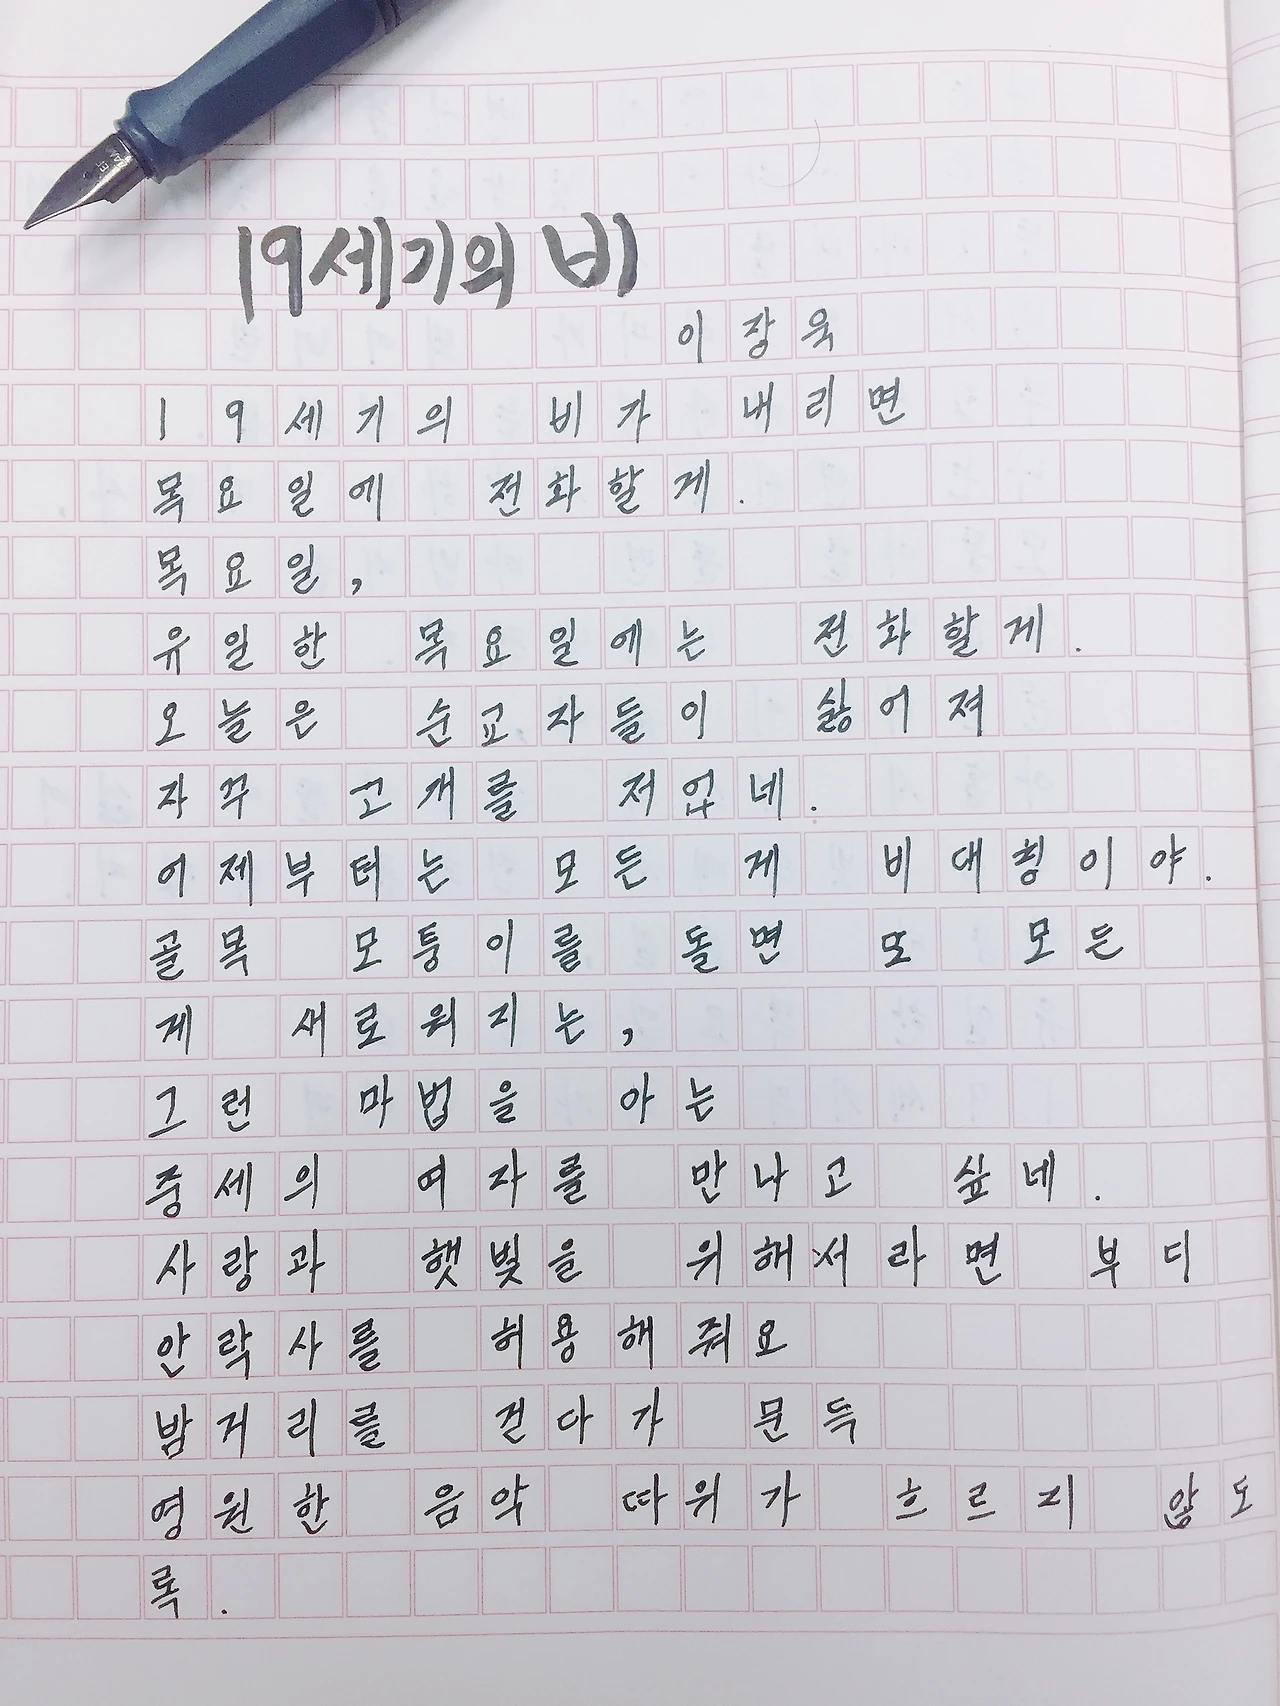 19세기의 비
이장욱
19세기의 비가 내리면
목요일에 전화할게.
목요일,
유일한 목요일에는 전화할게.
오늘은 순교자들이 싫어져
자꾸 고개를 저었네.
어제부터는 모든 게 비대칭이야.
골목 모퉁이를 돌면 또 모든
게 새로워지는,
그런 마법을 아는
중세의 여자를 만나고 싶네.
사랑과 햇빛을 위해서라면 부디
안락사를 허용해줘요
밤거리를 걷다가 문득
영원한 음악 따위가 흐르지 않도
록.